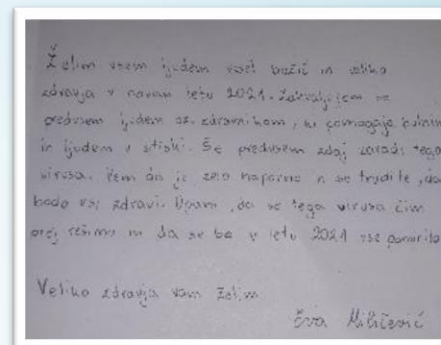 Želim vsem ljudem vesel božič in veliko
zdravja v novem letu 2021. Zahvaljujem se
predvsem ljudem oz. zdravnikom, ki pomagajo bolnim
in ljudem v stiski. Še predvsem zdaj zaradi tega
virusa. Vem da je zelo naporno in se trudite, da
bodo vsi zdravi. Upam, da se tega virusa čim
prej rešimo in da se bo v letu 2021 vse pomirilo
Veliko zdravja vam želim
Eva Miličević